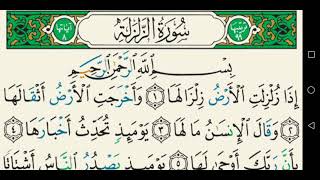 سُورَةُ الزَّلْزَلَةِ
بِسْمِ اللَّهِ الرَّحْمَٰنِ الرَّحِيمِ
إِذَا زُلْزِلَتِ الْأَرْضُ زِلْزَالَهَا ١ وَأَخْرَجَتِ الْأَرْضُ أَثْقَالَهَا
٢ وَقَالَ الْإِنسَٰنُ مَا لَهَا ٣ يَوْمَئِذٍ تُحَدِّثُ أَخْبَارَهَا ٤
بِأَنَّ رَبَّكَ أَوْحَىٰ لَهَا ٥ يَوْمَئِذٍ يَصْدُرُ النَّاسُ أَشْتَاتًا